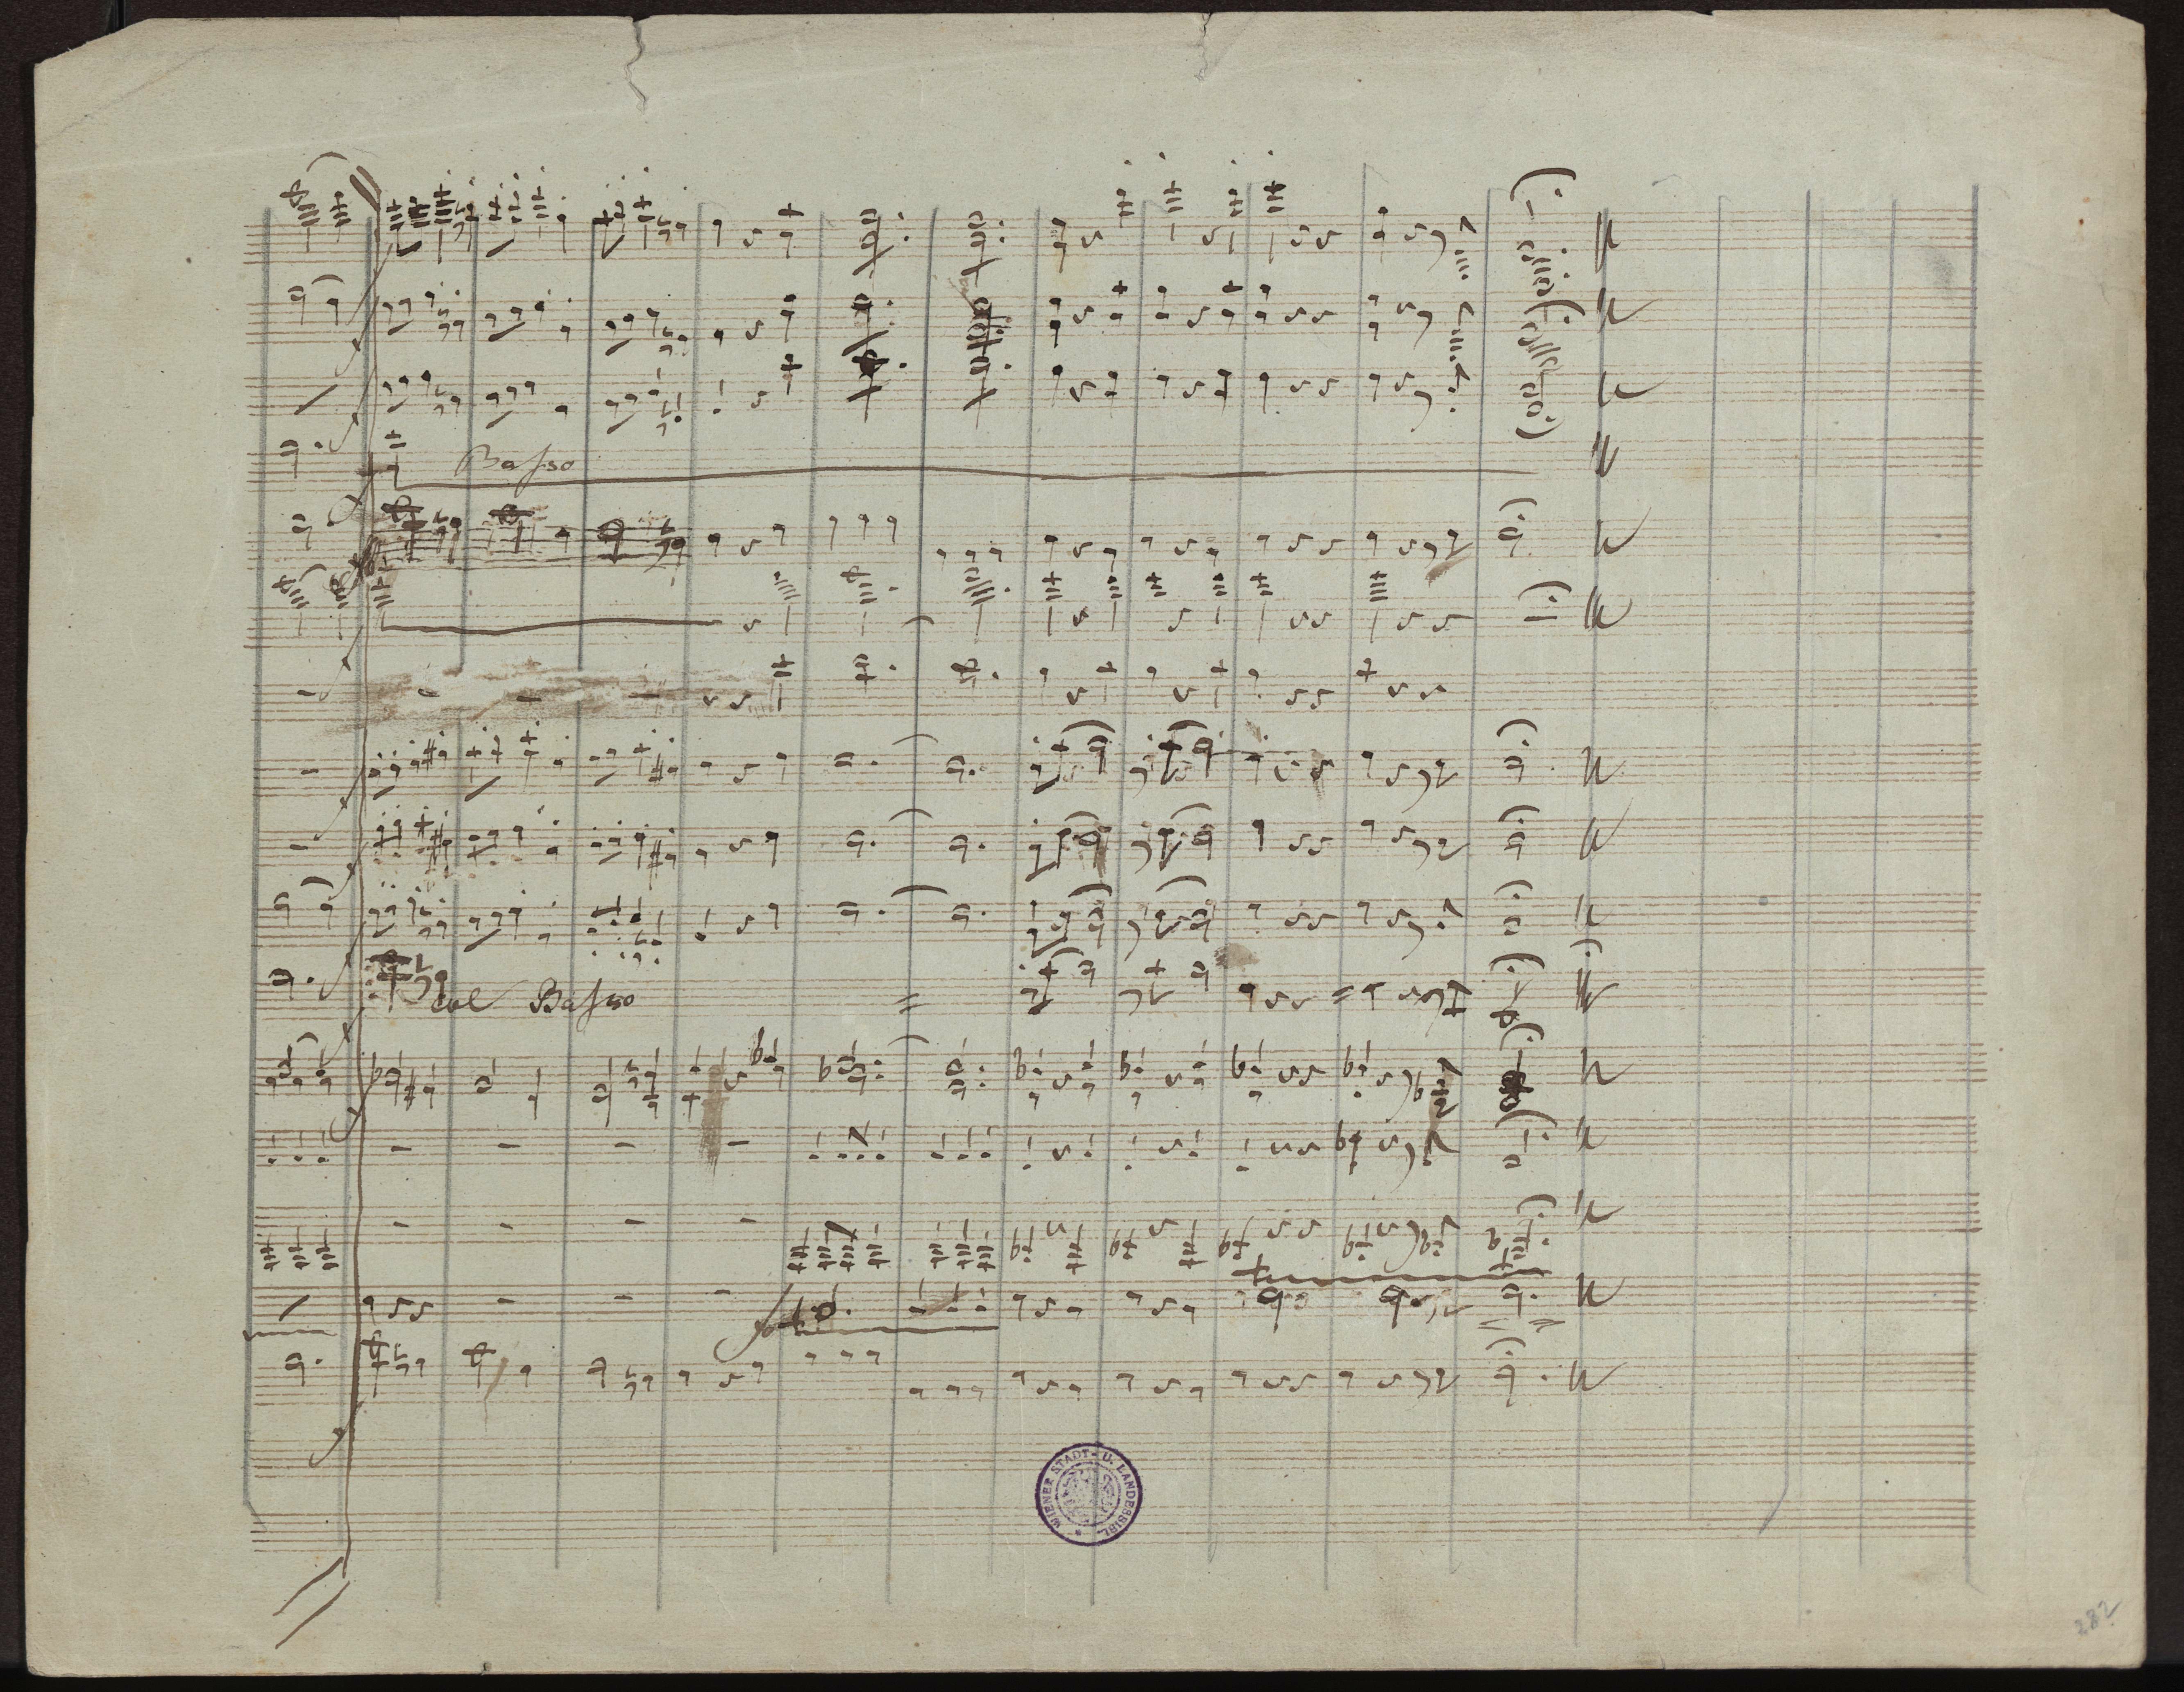 Basso
col Basso
WIENER STADT- U. LANDESBIBL.
282